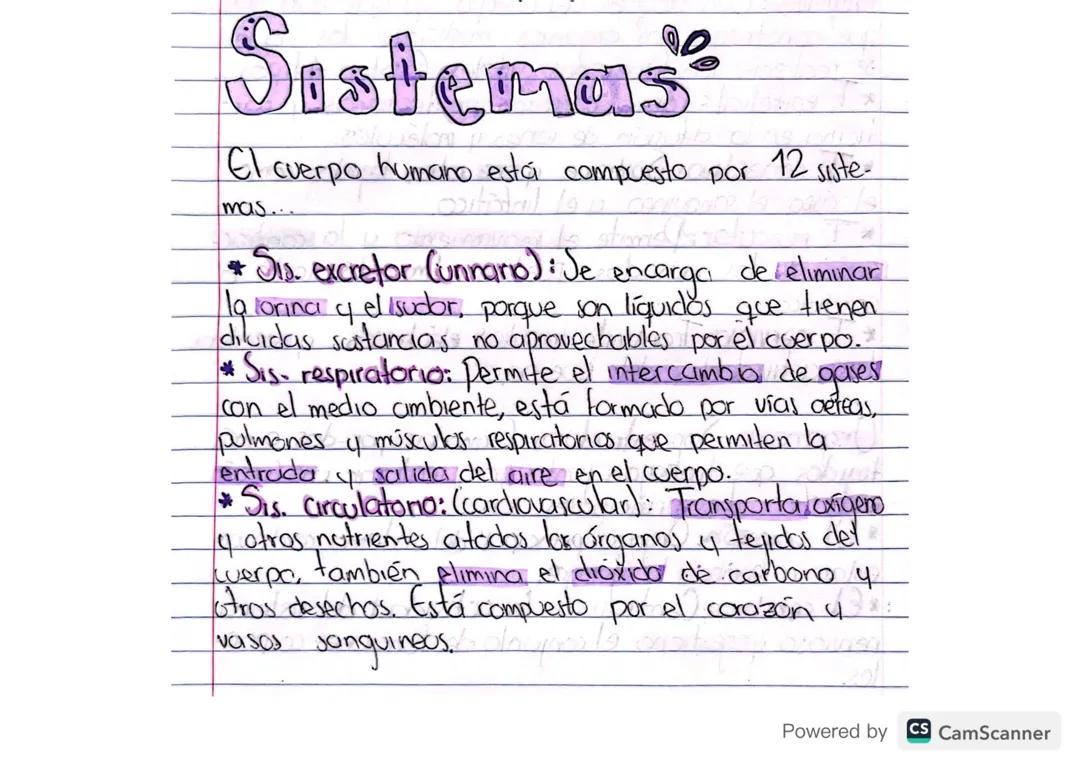 Sistemas
El cuerpo humano está compuesto por 12 siste-
mas...
* Sis. excretor (urinario): Se encarga de eliminar
la orina y el sudor, porque son líquidos que tienen
diluidas sustancias no aprovechables por el cuerpo.
* Sis. respiratorio: Permite el intercambio de gases
con el medio ambiente, está formado por vías aéreas,
pulmones y músculos respiratorios que permiten la
entrada y salida del aire en el cuerpo.
* Sis. circulatorio: (cardiovascular): Transporta oxígeno
y otros nutrientes a todos los órganos y tejidos del
cuerpo, también elimina el dióxido de carbono y
otros desechos. Está compuesto por el corazón y
vasos sanguineos.
Powered by CS CamScanner